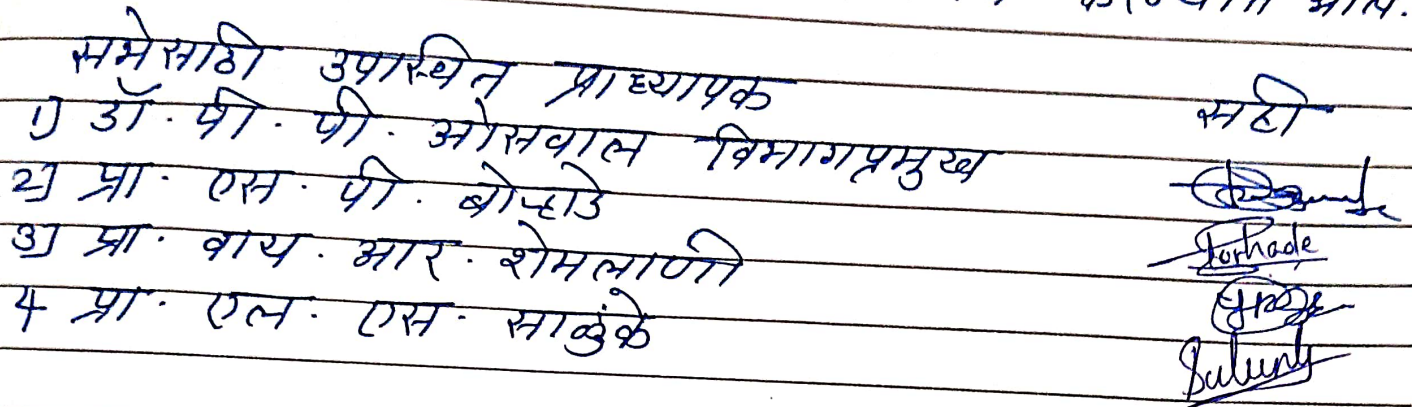 सभेसाठी उपस्थित प्राध्यापक सही
1) डॉ. पी. पी. ओसवाल विभागप्रमुख
2) प्रा. एस. पी. बोऱ्हाडे Borhade
3) प्रा. वाय. आर. शेमलाणी
4 प्रा. एल. एस. साळुंके